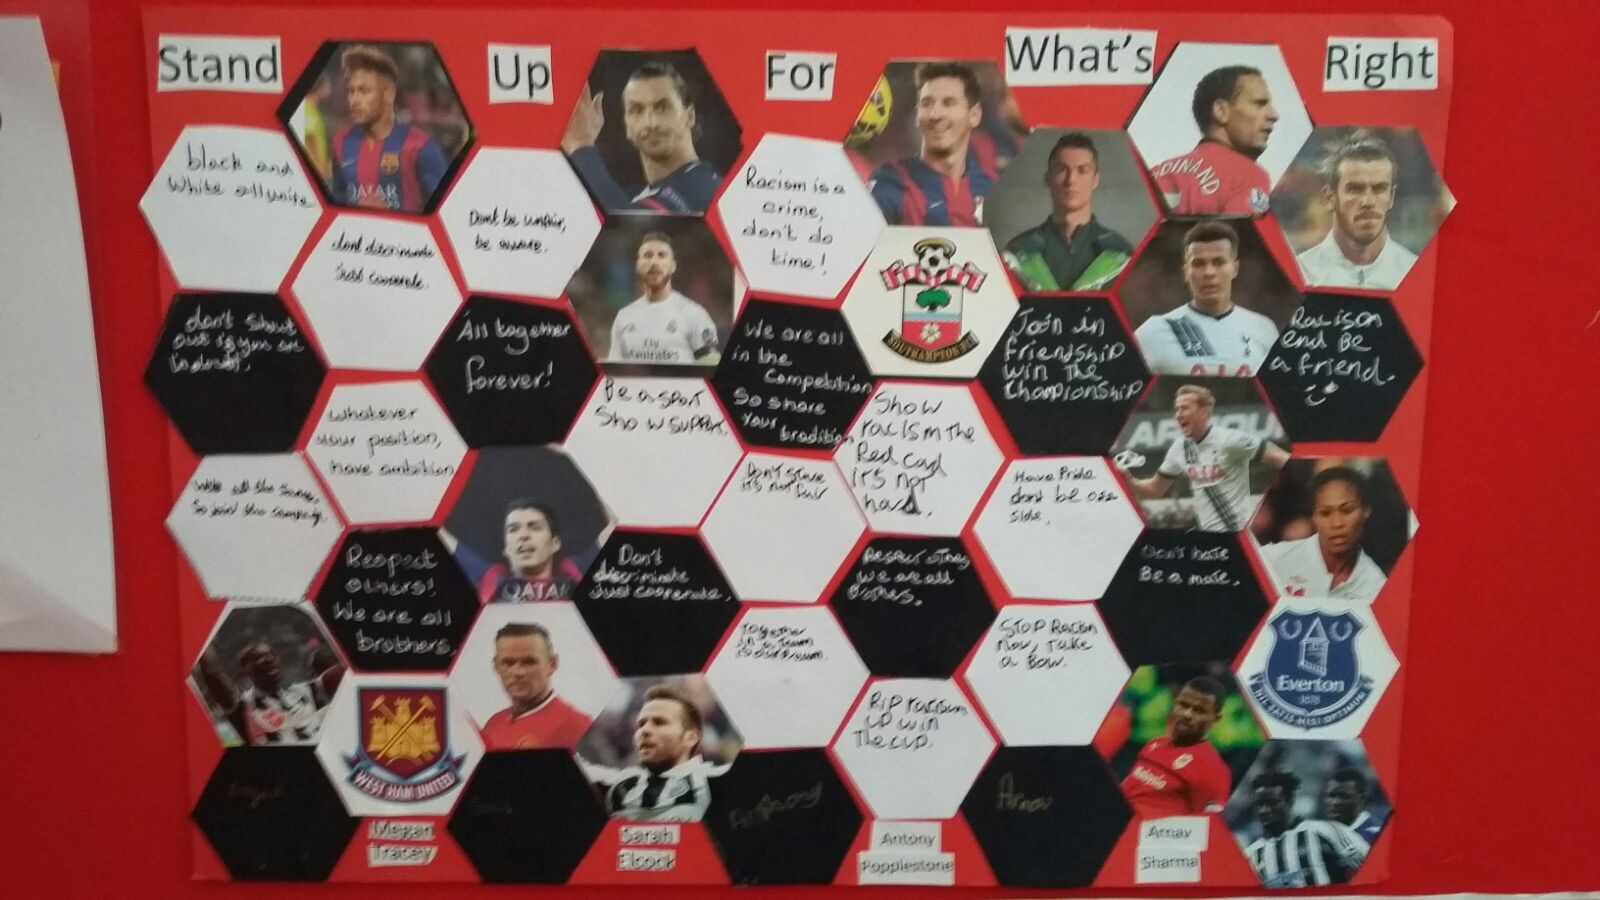 Stand Up For What's Right
black and
White all unite.
Dont be unfair,
be aware.
Racism is a
crime,
don't do
time!
DINAND
dont discriminate
Just cooperate.
QATAR
don't shout
out if you are
in doubt.
All together
forever!
Fly
Emirates
We are all
in the
Competition
So share
Your
tradition
SOUTHAMPTON F.C.
Join in
friendship
win the
Championship
AIA
Racison
end Be
a friend.
whatever
your position,
have ambition
Be a sport
Show support.
Show
racism the
Red card
it's not
hard.
AIA
were all the same,
So joint the campaign.
Don't stare
it's not fair
Have Pride
dont be off
side.
Respect
others!
We are all
brothers.
QATAR
Don't
discriminate
Just cooperate.
Respect others
we are all
Brothers.
Don't hate
Be a mate.
Together
is our dream.
STOP Racism
now, Take
a Bow.
Everton
1878
NIL SATIS NISI OPTIMUM
WEST HAM UNITED
Rip racism
up win
the cup.
Malaysia
Megan
Anthony
Arnav
Megan
Tracey
Sarah
Elcock
Antony
Popplestone
Arnav
Sharma